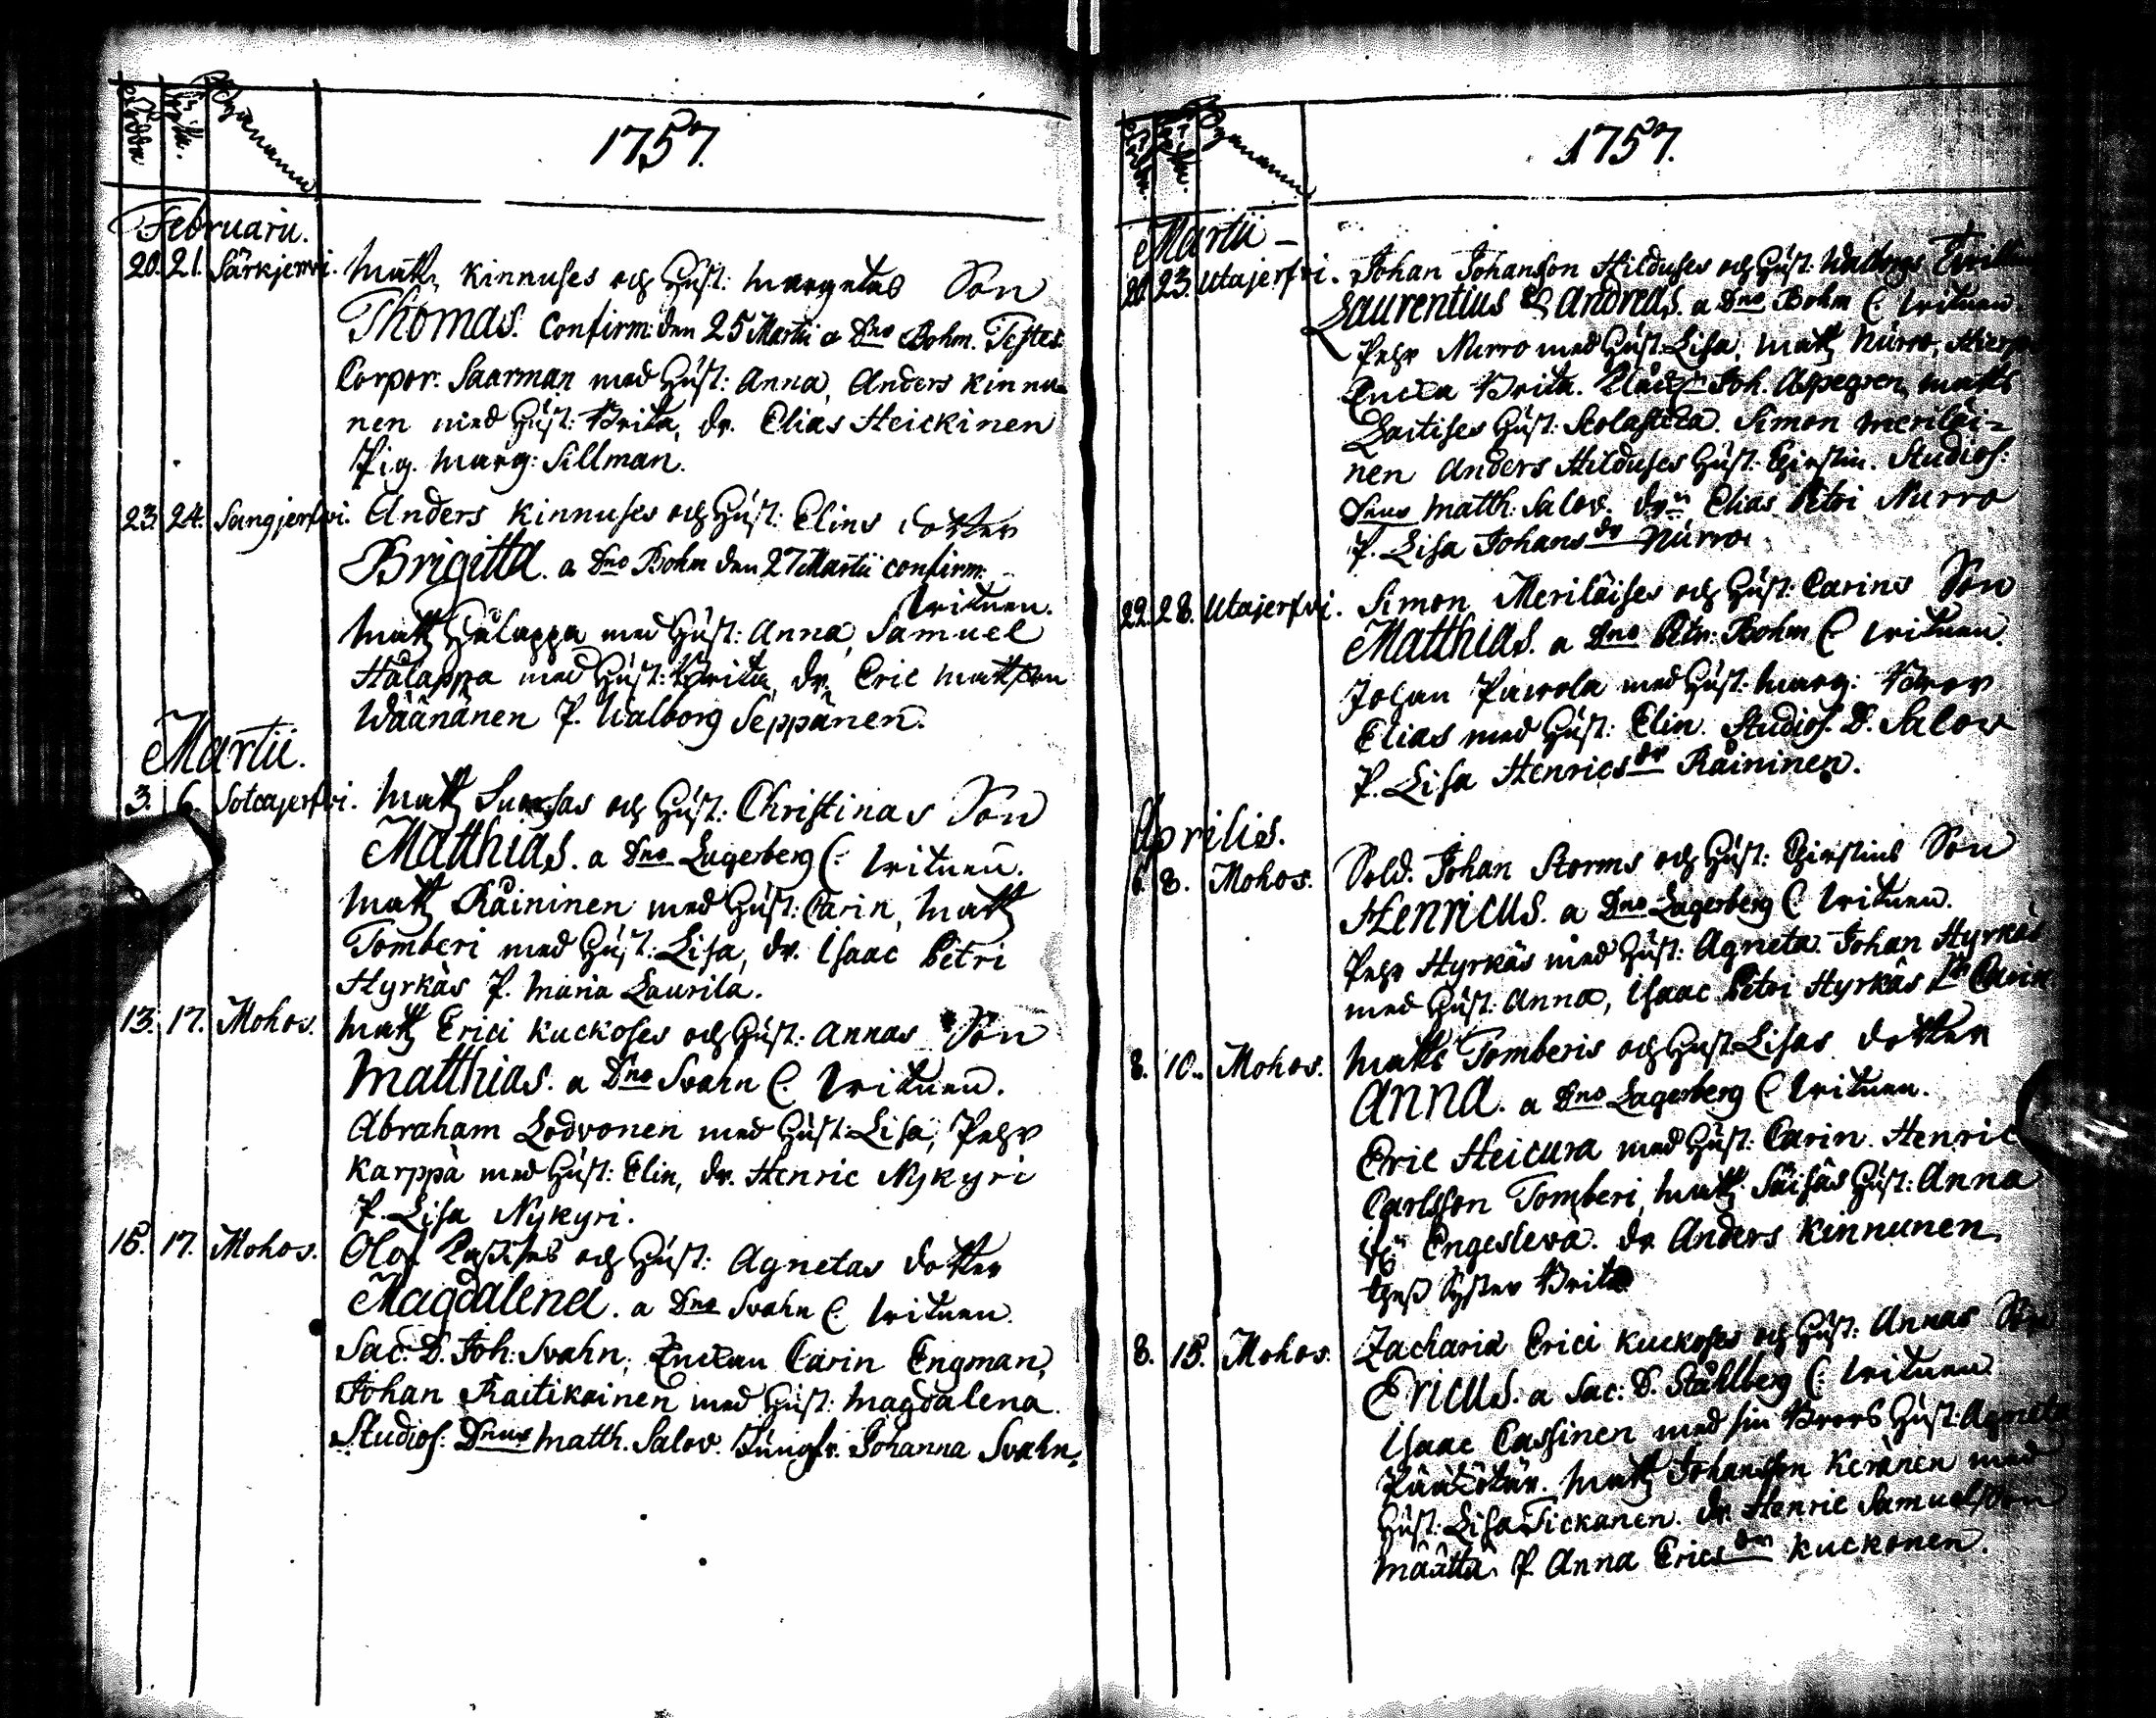 Födda
Christn.
Byanamn
1757.
Februarii.
20. 21. Särkjerfvi. Matz Kinnuses och Hust: Margretas Son
Thomas. Confirm: den 25 Martii a Dno Bohm. Testes
Corpor. Saarman med Hust: Anna, Anders Kinnu-
nen med Hust: Brita, dr. Elias Heickinen
Pig. Marg: Sillman.
23. 24. Sangjerfvi. Anders Kinnuses och Hust: Elins dotter
Brigitta. a Dno Bohm den 27 Martii confirm:
Vittnen.
Matz Halappa med Hust: Anna, Samuel
Halappa med Hust: Brita, dr. Eric Mattson
Wäänänen P. Walborg Seppänen.
Martii.
3. 6. Sotcajerfvi. Matz och Hust: Christinas Son
Matthias. a Dno Lagerberg (: Vittnen.
Matz Räininen med Hust: Carin, Matz
Tomberi med Hust: Lisa, dr. Isaac Petri
Hyrkäs P. Maria Laurila.
13. 17. Mohos. Matz Erici Kuckoses och Hust: Annas Son
Matthias. a Dno Svahn (: Vittnen.
Abraham Lodvonen med Hust: Lisa, Pehr
Karppä med Hust: Elin, dr. Henric Nykyri
P. Lisa Nykyri.
15. 17. Mohos. Olof och Hust: Agnetas dotter
Magdalena. a Dno Svahn (: Vittnen.
Sac: D. Joh: Svahn, Enckan Carin Engman,
Johan Raitikainen med Hust: Magdalena.
Studios: Dnus Matth. Salov. Jungfr. Johanna Svahn.
Födda
Byanamn
1757.
Martii
20. 23. Utajerfvi. Johan Johanson Hilduses och Hust: Walborgs Tvillin
Laurentius & Andreas. a Dno Bohm (: Vittnen.
Pehr Nurro med Hust: Lisa, Matz Nurro,
Enckia Brita. Joh. Aspegren, Matts
Laitises Hust: Scolastica. Simon Meriläi-
nen Anders Hilduses Hust: Chirstin. Studios:
Dnus Matth: Salov. drn Elias Petri Nurro
P. Lisa Johansdr Nurro.
22. 28. Utajerfvi. Simon Meriläises och Hust: Carins Son
Matthias. a Dno Petr: Bohm (: Vittnen.
Johan Pavola med Hust: Marg: Bror
Elias med Hust: Elin. Studios. D. Salov
P. Lisa Henricsdr Räininen.
Aprilis.
6. 8. Mohos. Sold. Johan Storms och Hust: Chirstins Son
Henricus. a Dno Lagerberg (: Vittnen.
Pehr Hyrkäs med Hust: Agneta. Johan Hyrkäs
med Hust: Anna, Isaac Petri Hyrkäs Carin
8. 10. Mohos. Matts Tomberis och Hust: Lisas dotter
Anna. a Dno Lagerberg (: Vittnen.
Eric Heicura med Hust: Carin. Henric
Carlsson Tomberi, Matz Säisäs Hust: Anna
Engeslewa. dr Anders Kinnunen,
thess Syster Brita
8. 15. Mohos. Zacharia Erici Kuckoses och Hust: Annas Son
Ericus. a Sac: D. Ståhlberg (: Vittnen.
Isaac Cassinen med sin Brors Hust: Agneta
Päätötär. Matz Johansson Keränen med
Hust: Lisa Tickanen. dr. Henric Samuelsson
Määttä. P. Anna Ericsdr Kuckonen.